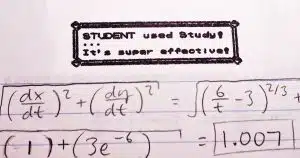 STUDENT used Study!
...
It's super effective!
√(dx/dt)² + (dy/dt)² = √(6/t - 3)^2/3 +
(1) + (3e⁻⁶) = 1.007